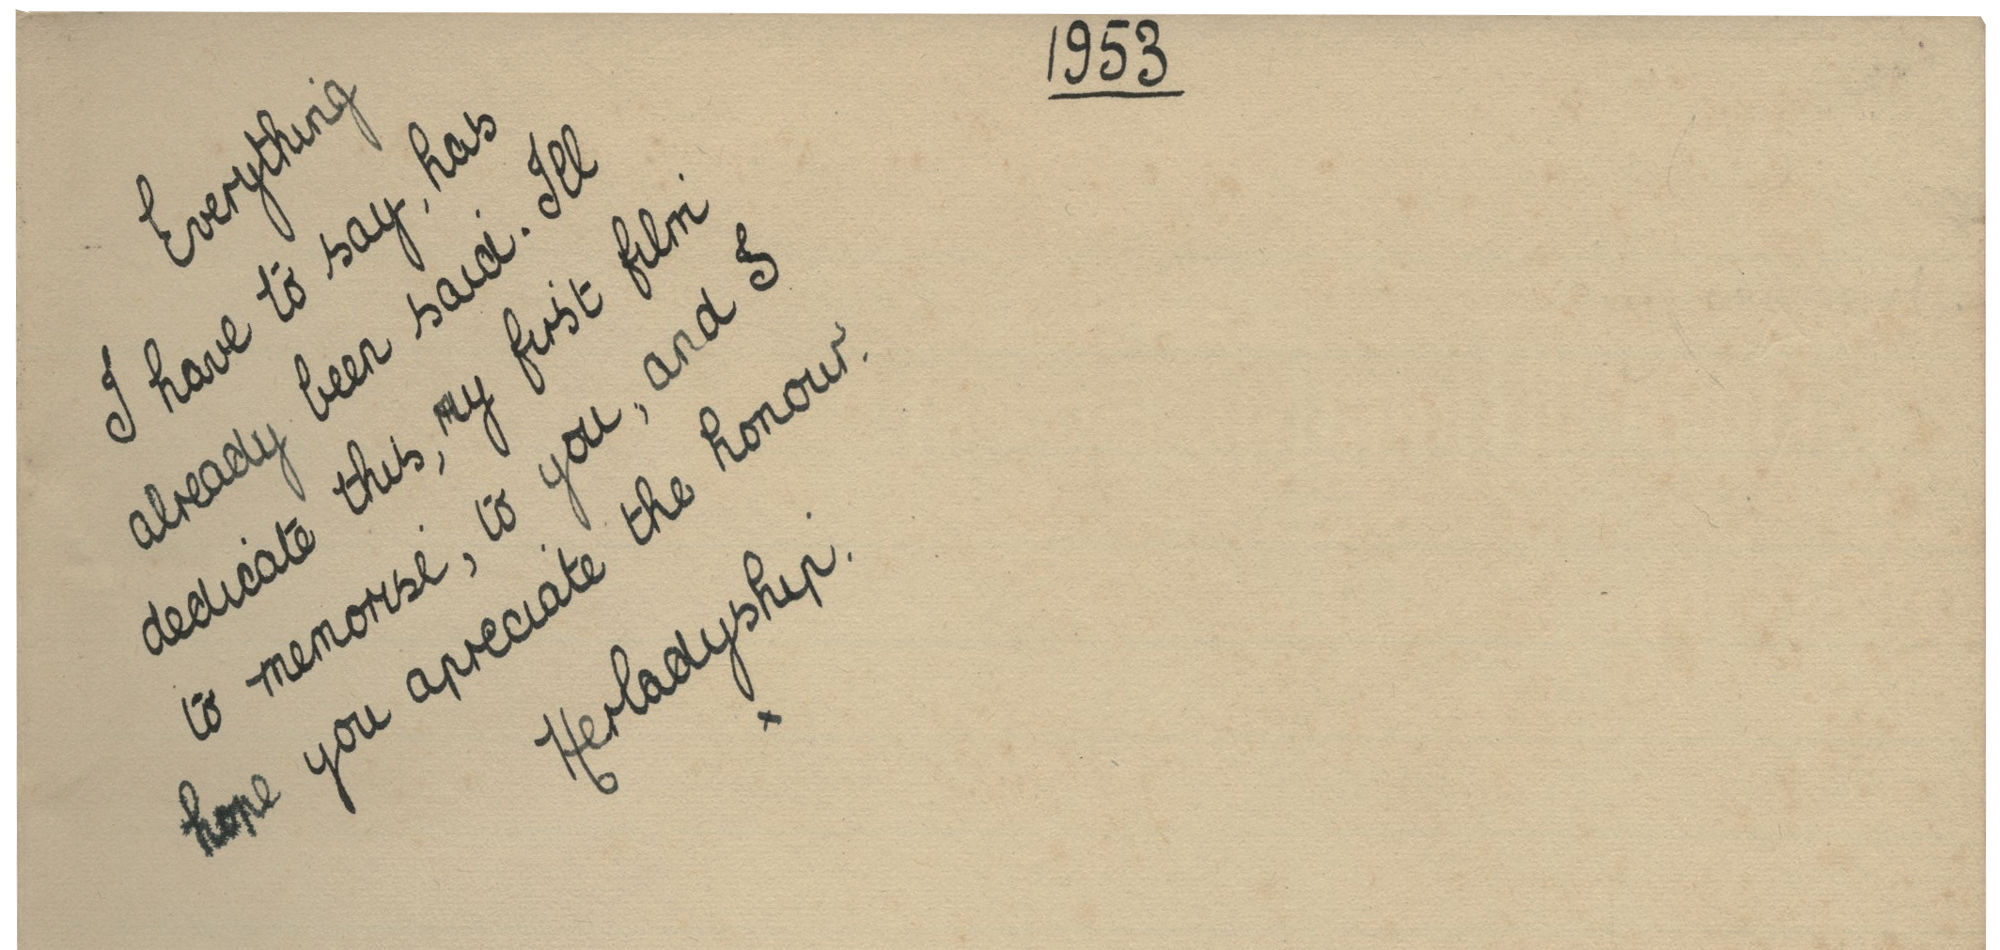 1953
Everything
I have to say, has
already been said. I'll
dedicate this, my first film
to memorise, to you, and I
hope you apreciate the honour.
Herladyship.
x